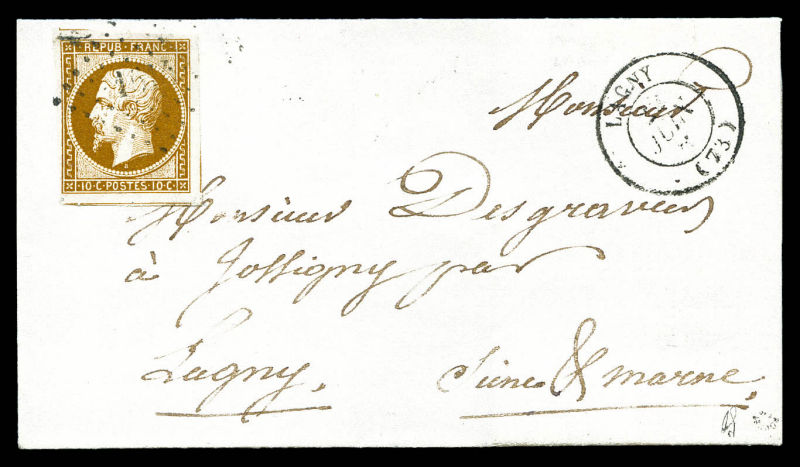 REPUB. FRANC.
10·C·POSTES·10·C
LAGNY
JUIN
(73)
Monsieur
Monsieur Desgraviers
à Jossigny par
Lagny,
Seine & marne.